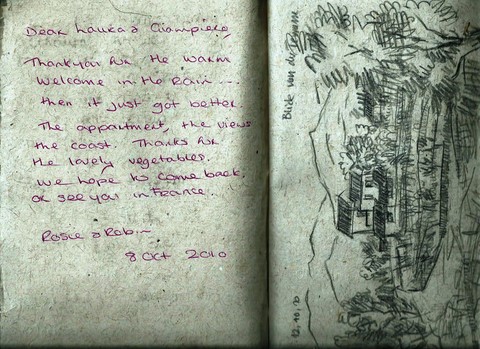 Dear Laura & Giampiero,
Thankyou for the warm
welcome in the Rain....
then it just got better.
The appartment, the views
the coast. Thanks for
the lovely vegetables.
we hope to come back,
or see you in France.
Rosie & Robin
8 Oct 2010
Blick von der
12.10.10